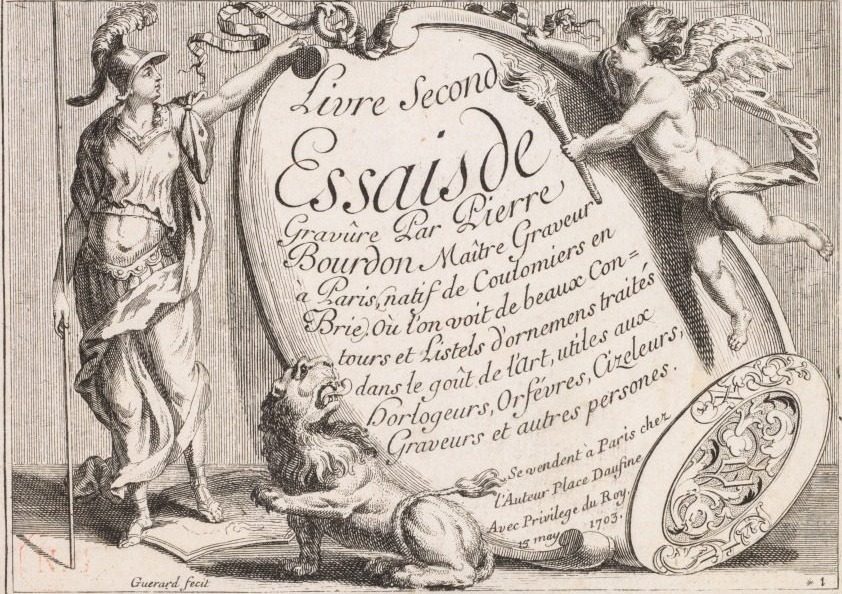 Livre Second
Essais de
Gravûre Par Pierre
Bourdon Maître Graveur
à Paris, natif de Coulomiers en
Brie. Où l'on voit de beaux Con=
tours et Listels d'ornemens traités
dans le goût de l'Art, utiles aux
Horlogeurs, Orfévres, Cizeleurs,
Graveurs et autres persones.
Se vendent à Paris chez
l'Auteur Place Daufine
Avec Privilege du Roy.
15 may 1703.
Guerard fecit
1